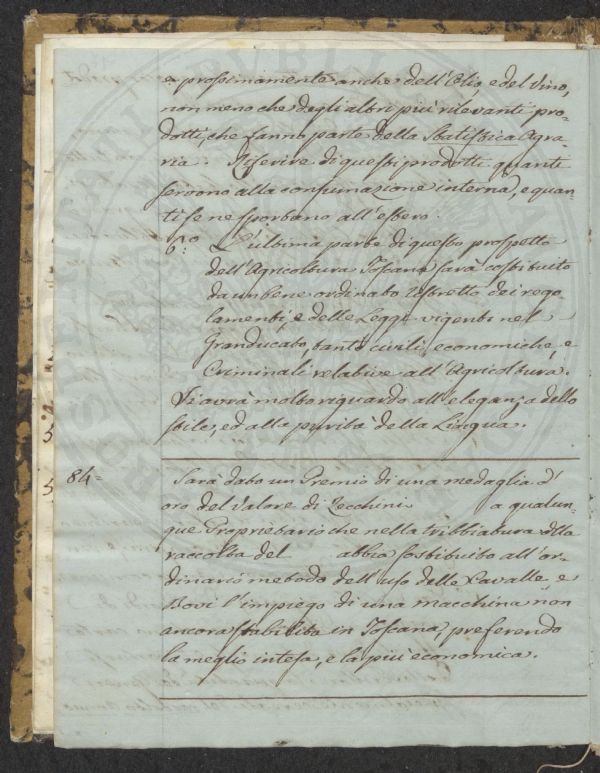 e prossinamente anche dell'Olio, e del Vino,
non meno che degli altri più rilevanti pro-
dotti, che fanno parte della Statistica Agra-
ria. Riferire di questi prodotti quanti
servono alla consumazione interna, e quan-
ti se ne sportano all'estero.
6.o L'ultima parte di questo prospetto
dell'Agricoltura Toscana sarà costituito
da un bene ordinato ristretto dei rego-
lamenti, e delle Leggi vigenti nel
Granducato, tanto civili, economiche, e
Criminali relative all'Agricoltura.
Si avrà molto riguardo all'eleganza dello
stile, ed alla purità della Lingua.
84= Sarà dato un Premio di una medaglia d'
oro del Valore di Zecchini a qualun-
que Proprietario che nella tribbiatura della
raccolta del abbia sostituito all'or-
dinario metodo dell'uso delle Cavalle e
Bovi l'impiego di una macchina non
ancora stabilita in Toscana, preferendo
la meglio intesa, e la più economica.
5
5